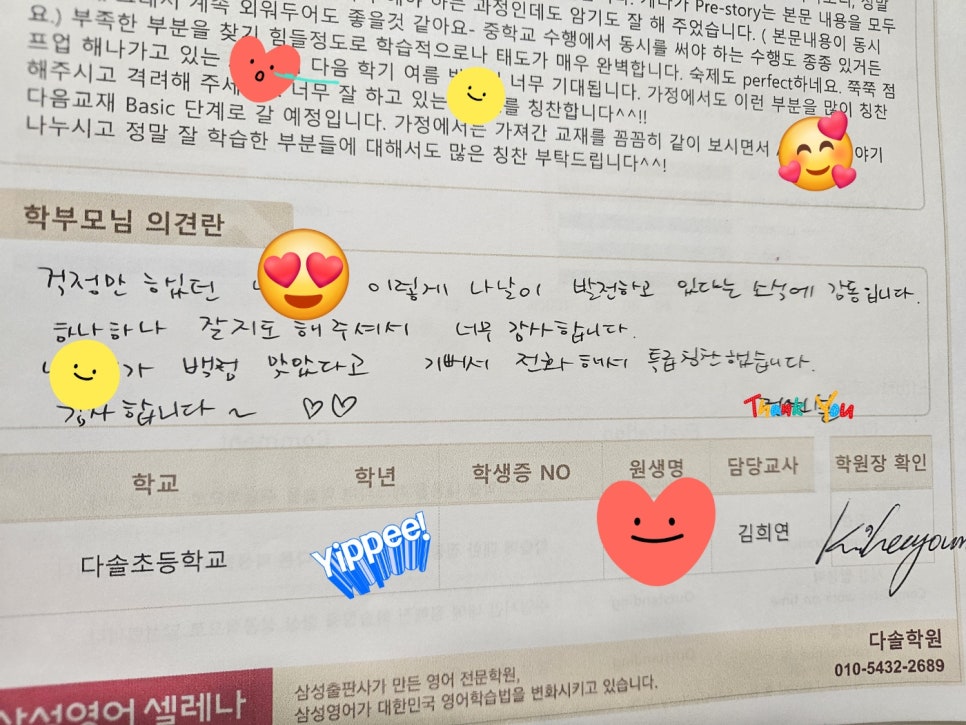 계속 외워두어도 좋을것 같아요- 중학교 수행에서 동시를 써야 하는 수행도 종종 있거든
하는 과정인데도 암기도 잘 해 주었습니다. ( 본문내용이 동시
Pre-story는 본문 내용을 모두
요.) 부족한 부분을 찾기 힘들정도로 학습적으로나 태도가 매우 완벽합니다. 숙제도 perfect하네요. 쭉쭉 점
프업 해나가고 있는 다음 학기 여름 너무 기대됩니다. 가정에서도 이런 부분을 많이 칭찬
해주시고 격려해 주세 너무 잘 하고 있는 를 칭찬합니다^^!!
다음교재 Basic 단계로 갈 예정입니다. 가정에서는 가져간 교재를 꼼꼼히 같이 보시면서 야기
나누시고 정말 잘 학습한 부분들에 대해서도 많은 칭찬 부탁드립니다^^!
학부모님 의견란
걱정만 했던 이렇게 나날이 발전하고 있다는 소식에 감동입니다.
하나하나 잘 지도 해주셔서 너무 감사합니다.
가 백점 맞았다고 기뻐서 전화해서 특급칭찬 했습니다.
감사합니다~ ♡♡
Thank You
학교 학년 학생증 NO 원생명 담당교사 학원장 확인
다솔초등학교 Yippee! 김희연
다솔학원
010-5432-2689
삼성영어 셀레나
삼성출판사가 만든 영어 전문학원,
삼성영어가 대한민국 영어학습법을 변화시키고 있습니다.